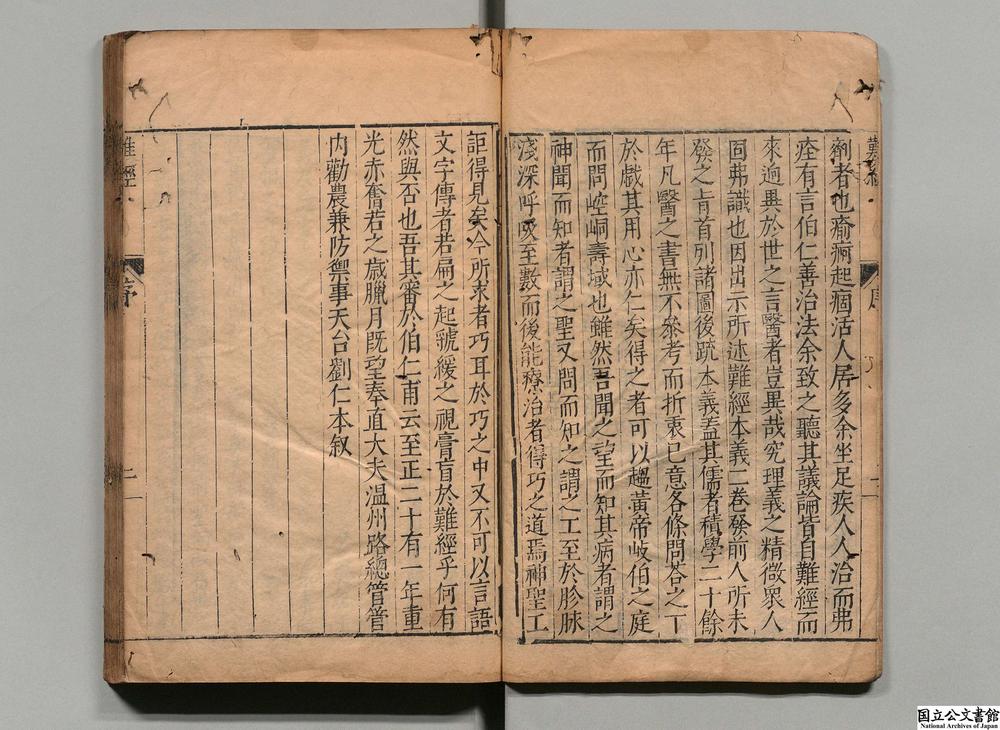 難經
序
二
劑者也瘉痾起痼活人居多余坐足疾人人治而弗
痊有言伯仁善治法余致之聽其議論皆自難經而
來逈異於世之言醫者豈異哉究理義之精微衆人
固弗識也因出示所述難經本義二卷發前人所未
發之旨首列諸圖後疏本義蓋其儒者積學二十餘
年凡醫之書無不參考而折衷己意各條問荅之下
於戲其用心亦仁矣得之者可以趨黃帝岐伯之庭
而問崆峒壽域也雖然吾聞之望而知其病者謂之
神聞而知者謂之聖又問而知之謂之工至於胗脉
淺深呼吸至數而後能療治者得巧之道焉神聖工
詎得見矣今所求者巧耳於巧之中又不可以言語
文字傳者若扁之起虢緩之視膏肓於難經乎何有
然與否也吾其審於伯仁甫云至正二十有一年重
光赤奮若之歲臘月既望奉直大夫温州路總管管
内勸農兼防禦事天台劉仁本叙
難經
序
二
国立公文書館
National Archives of Japan